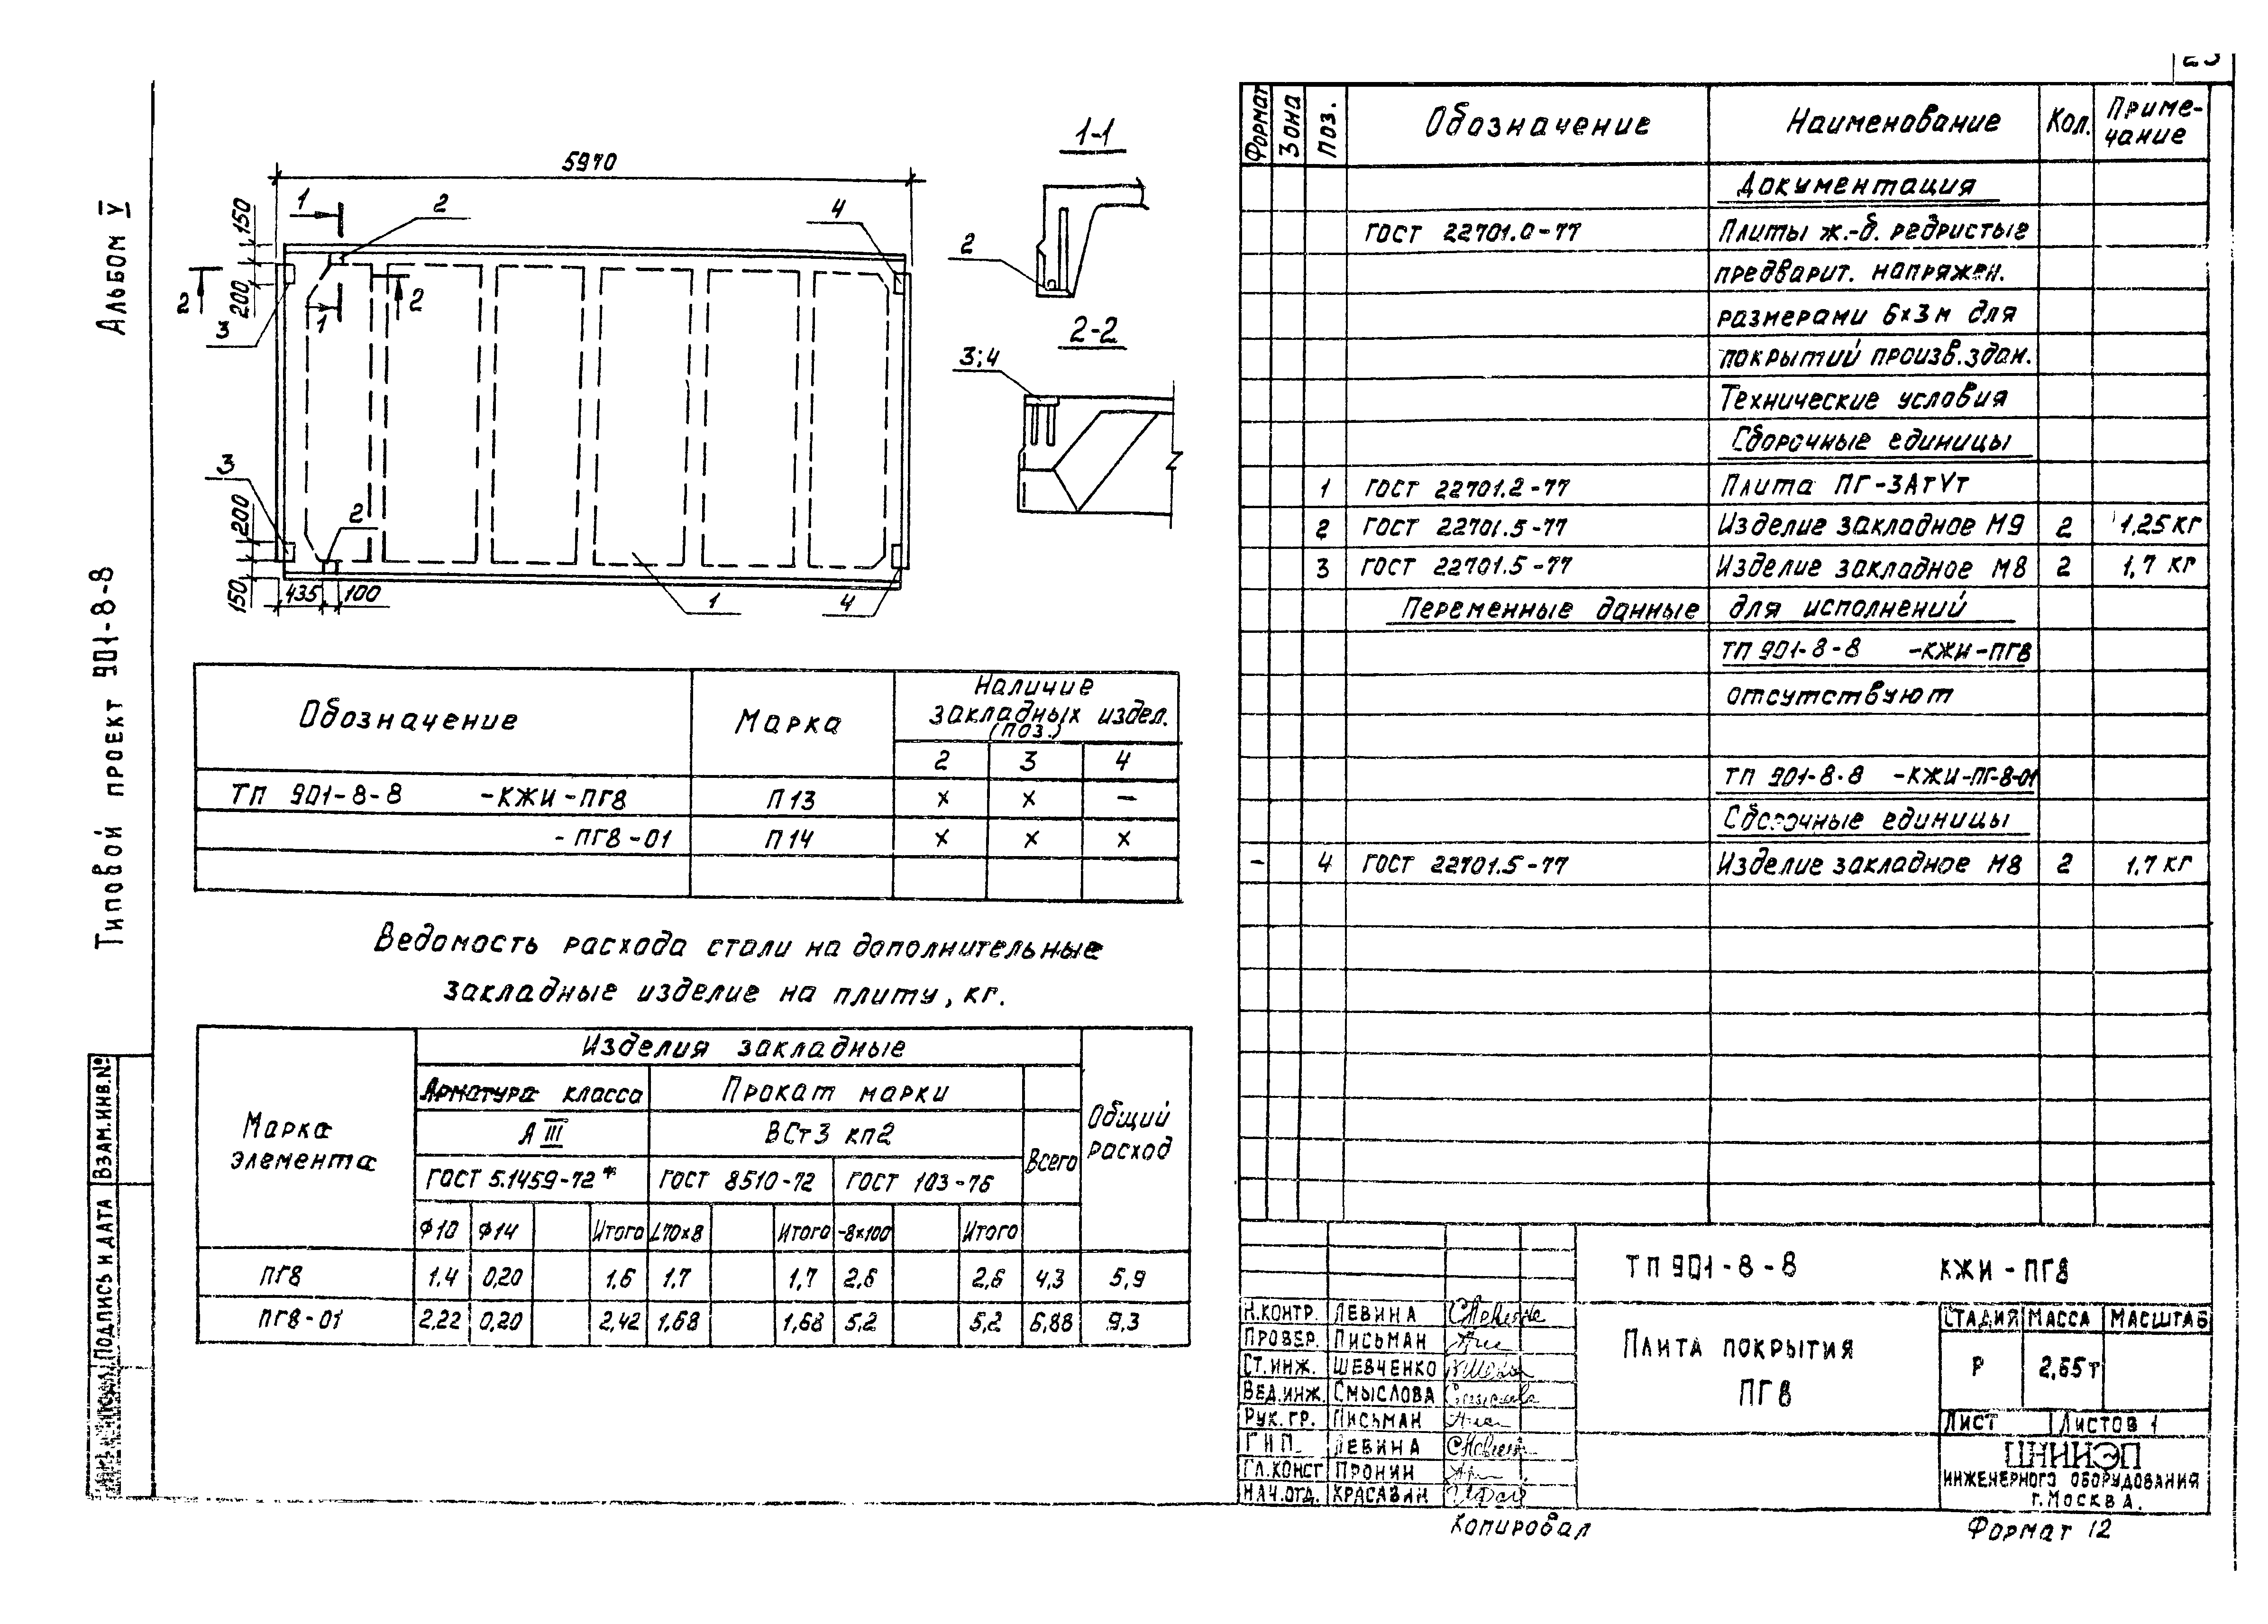 Альбом V
Типовой проект 901-8-8
ВЗАМ.ИНВ.№
ПОДПИСЬ И ДАТА
5970
1
2
4
150
200
2
2
3
1
3
200
150
2
435
100
1
4
1-1
2
2-2
3;4
Обозначение
Марка
Наличие
закладных издел.
(поз.)
2 3 4
ТП 901-8-8 -КЖИ-ПГ8 П13 × × —
-ПГ8-01 П14 × × ×
Ведомость расхода стали на дополнительные
закладные изделие на плиту, кг.
Марка
элемента
Изделия закладные
Общий
расход
Арматура класса
Прокат марки
А III
ВСт3 кп2
Всего
ГОСТ 5.1459-72*
ГОСТ 8510-72
ГОСТ 103-76
Ф10 Ф14 Итого L70×8 Итого -8×100 Итого
ПГ8 1.4 0,20 1.6 1.7 1,7 2,6 2,6 4,3 5,9
ПГ8-01 2,22 0,20 2,42 1,68 1,68 5,2 5,2 6,88 9,3
Формат Зона Поз. Обозначение Наименование Кол. Приме-
чание
Документация
ГОСТ 22701.0-77 Плиты ж.-б. ребристые
предварит. напряжен.
размерами 6×3м для
покрытий произв.здан.
Технические условия
Сборочные единицы
1 ГОСТ 22701.2-77 Плита ПГ-3АтVт
2 ГОСТ 22701.5-77 Изделие закладное М9 2 1,25 кг
3 ГОСТ 22701.5-77 Изделие закладное М8 2 1,7 кг
Переменные данные для исполнений
ТП 901-8-8 -КЖИ-ПГ8
отсутствуют
ТП 901-8-8 -КЖИ-ПГ-8-01
Сборочные единицы
- 4 ГОСТ 22701.5-77 Изделие закладное М8 2 1,7 кг
ТП 901-8-8 КЖИ-ПГ8
Н.КОНТР. ЛЕВИНА
ПРОВЕР. ПИСЬМАН
СТ.ИНЖ. ШЕВЧЕНКО
ВЕД.ИНЖ. СМЫСЛОВА
РУК. ГР. ПИСЬМАН
ГИП ЛЕВИНА
ГЛ.КОНСТ ПРОНИН
НАЧ.ОТД. КРАСАВИН
ПЛИТА ПОКРЫТИЯ
ПГ8
СТАДИЯ МАССА МАСШТАБ
Р 2,65т
ЛИСТ ЛИСТОВ 1
ЦНИИЭП
ИНЖЕНЕРНОГО ОБОРУДОВАНИЯ
Г.МОСКВА.
Копировал
Формат 12